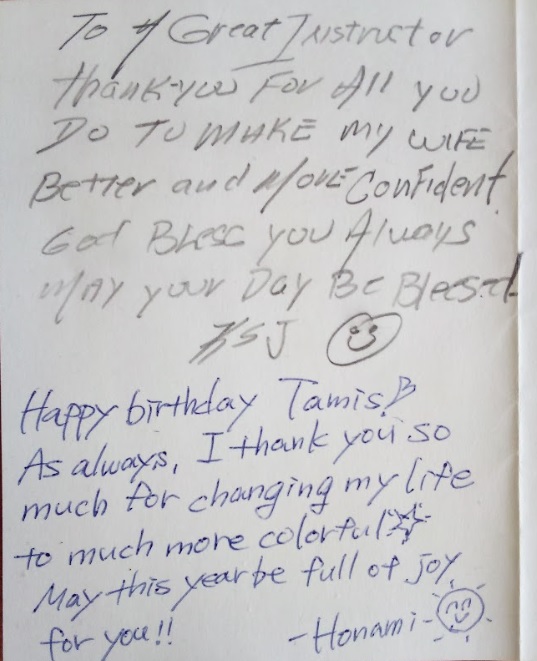 To A Great Instructor
thank-you For All you
Do To MAKE my WIFE
Better and MORE Confident.
God Bless you Always
MAY your Day Be Blessed
KSJ
Happy birthday Tamis!
As always, I thank you so
much for changing my life
to much more colorful
May this year be full of joy
for you!! -Honami-